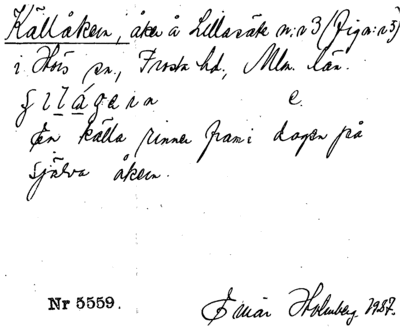 Källåkern, åker å Lillasäte n:r 3 (fig n:r 3)
i Hörs sn, Frosta hd, Mlm. län.
En källa rinner fram i dagen på
själva åkern.
Nr 5559.
Einar Holmberg 1937.